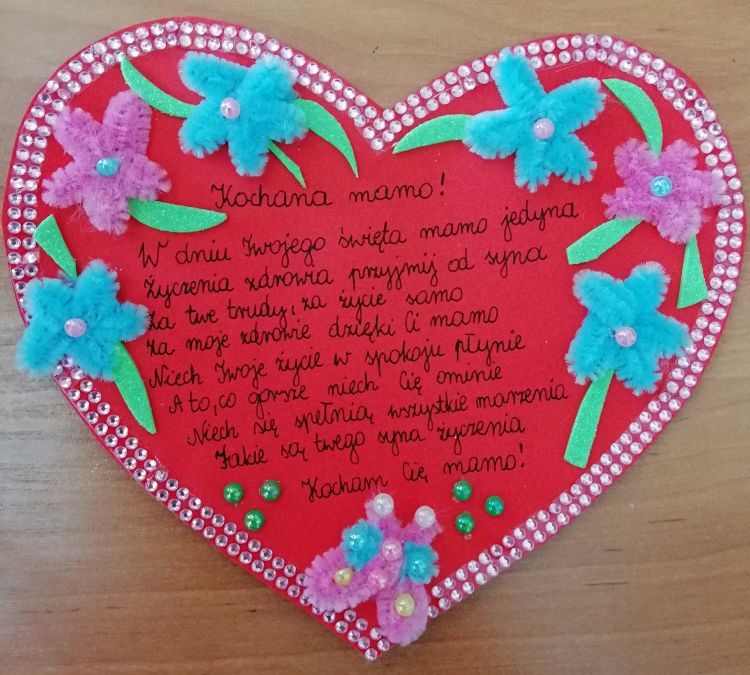 Kochana mamo!
W dniu Twojego święta mamo jedyna
Życzenia zdrowia przyjmij od syna
Za twe trudy, za życie samo
Za moje zdrowie dzięki Ci mamo
Niech Twoje życie w spokoju płynie
A to, co gorsze niech Cię ominie
Niech się spełnią wszystkie marzenia
Jakie są twego syna życzenia
Kocham Cię mamo!